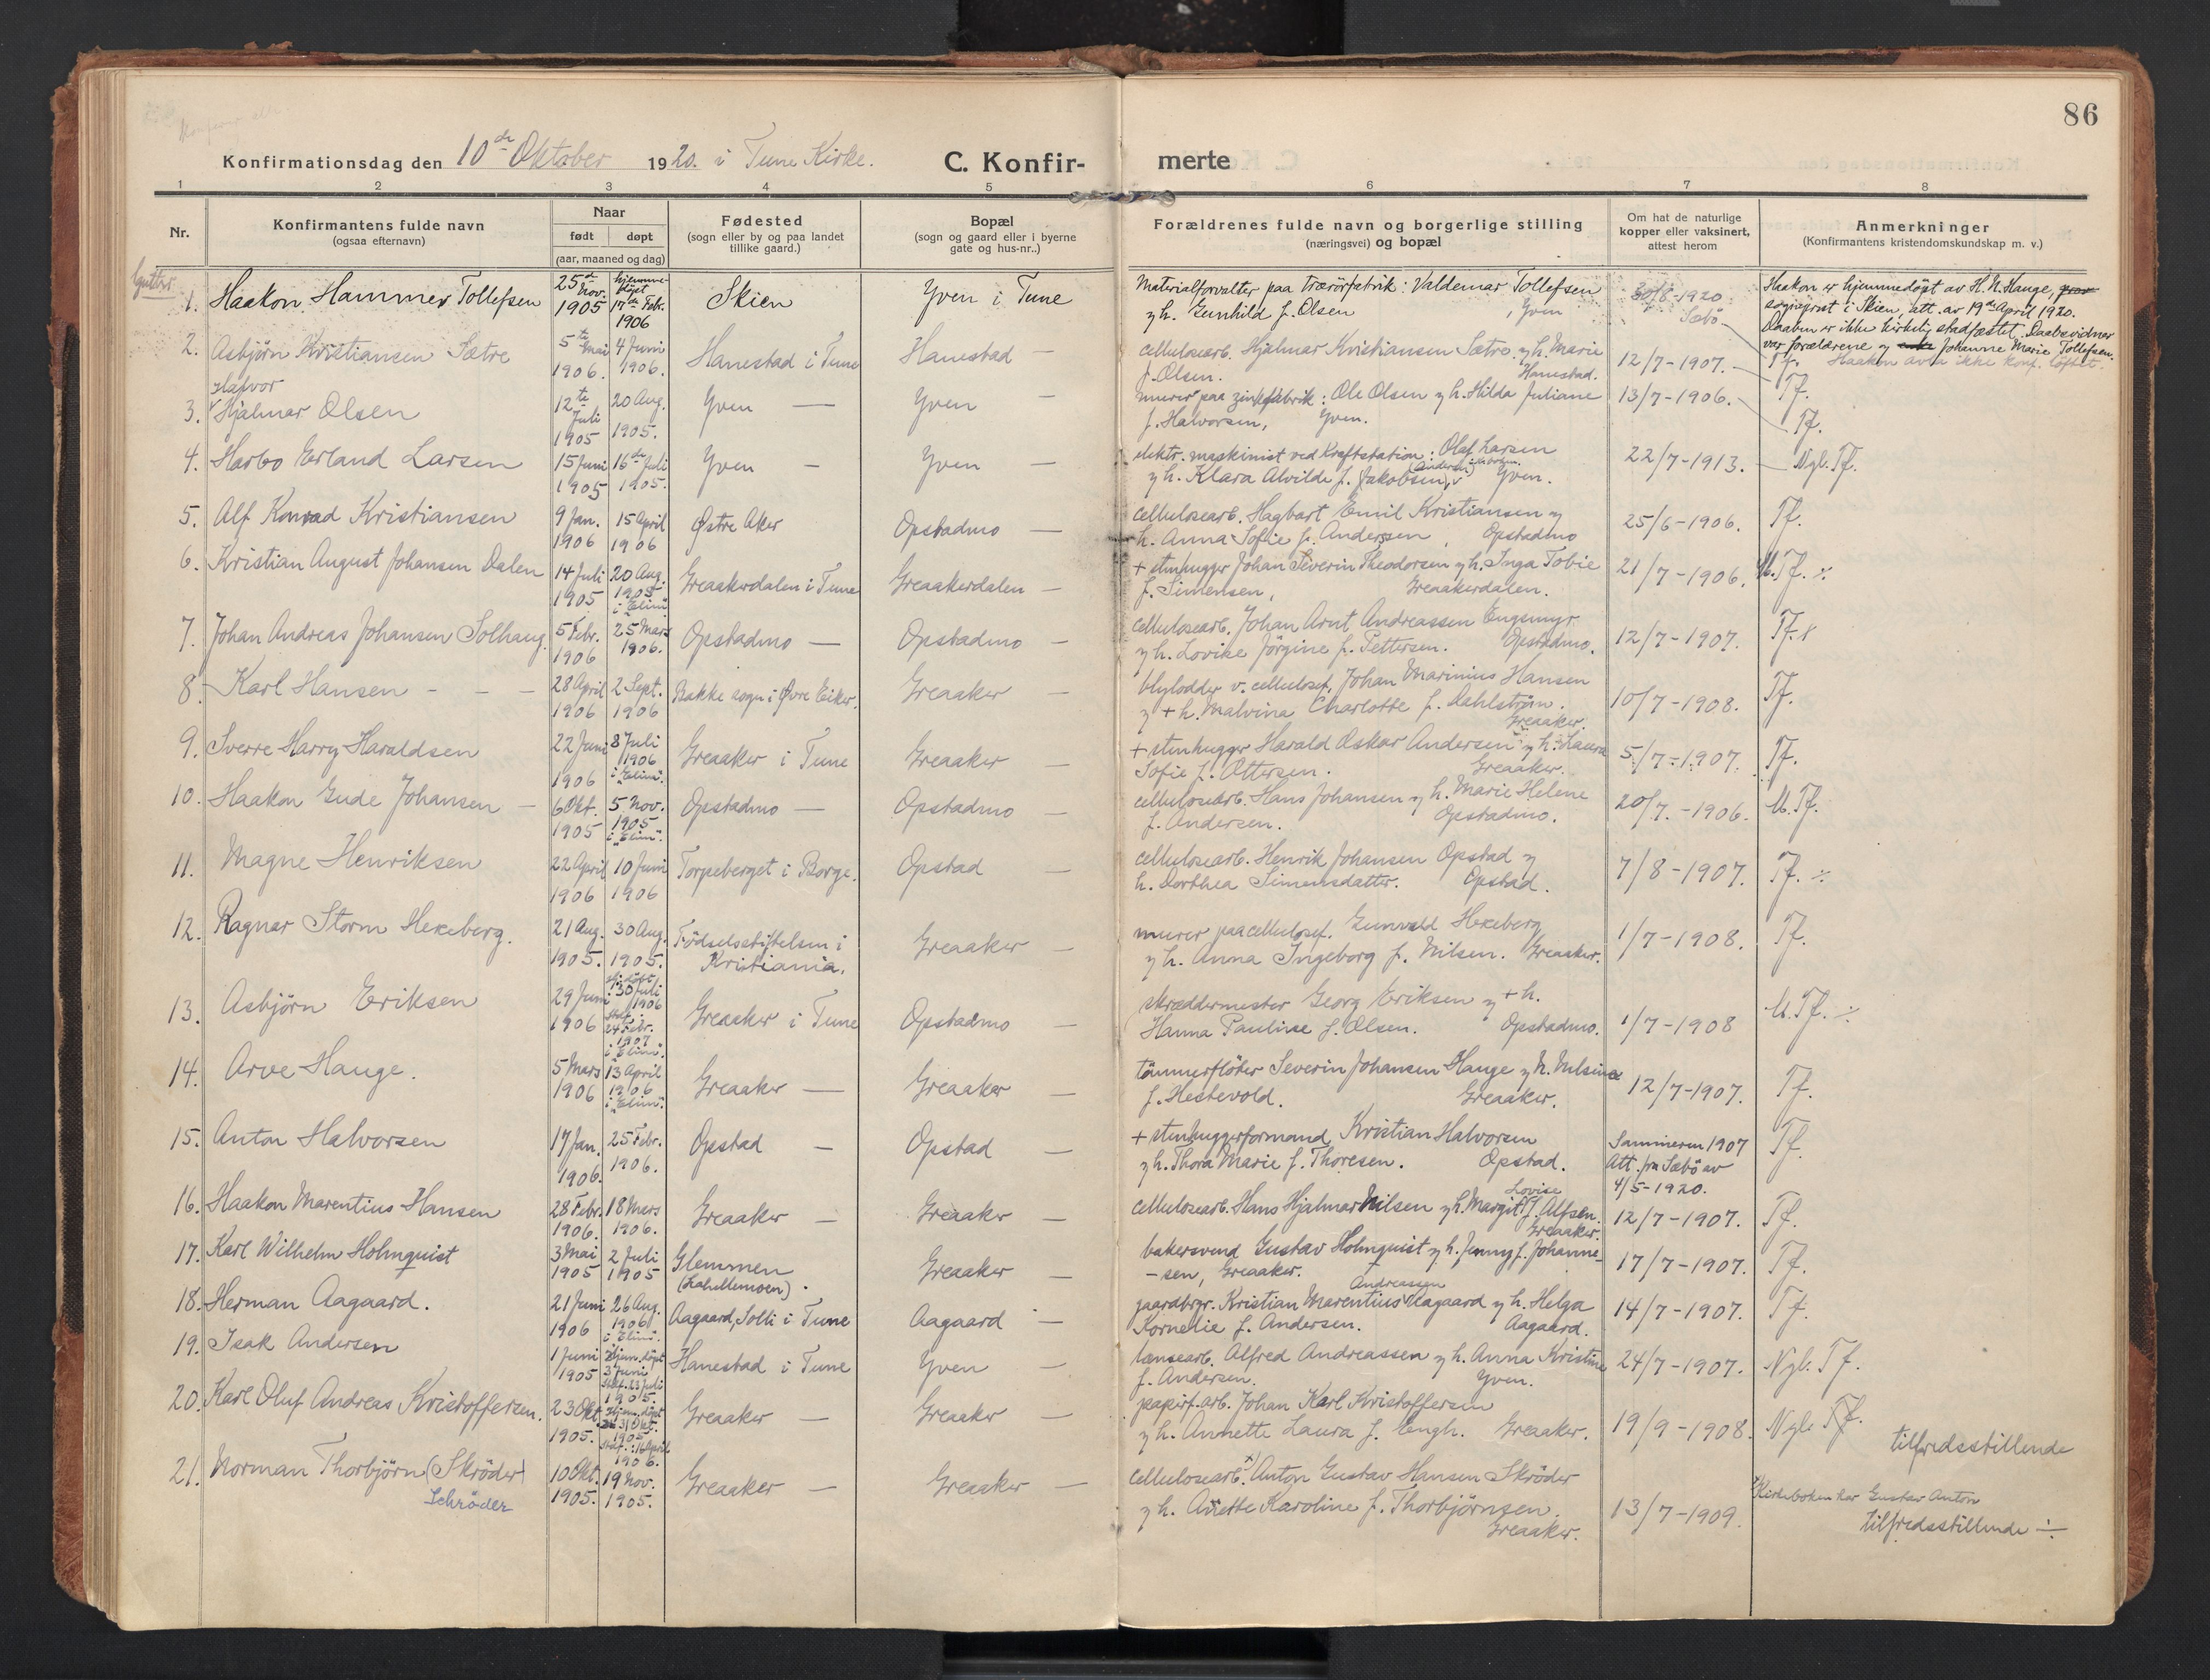 86
Konfirmationsdag den 10de Oktober 1920. i Tune Kirke.
C. Konfir-merte
1 2 3 4 5 6 7 8
Nr.
Konfirmantens fulde navn
(ogsaa efternavn)
Naar
født døpt
(aar, maaned og dag)
Fødested
(sogn eller by og paa landet
tillike gaard.)
Bopæl
(sogn og gaard eller i byerne
gate og hus-nr..)
Forældrenes fulde navn og borgerlige stilling
(næringsvei) og bopæl
Om hat de naturlige
kopper eller vaksinert,
attest herom
Anmerkninger
(Konfirmantens kristendomskundskap m. v.)
Gutter
1. Haakon Hammer Tollefsen
25de Nov. 1905
hjemmedøpt 17de Febr. 1906
Skien
Yven i Tune
Materialforvalter paa trærörfabrik: Valdemar Tollefsen
og h. Gunhild f. Olsen, Yven
30/8-1920. Sæbö
Haakon er hjemmedöpt av H. N. Hauge,
sogneprest i Skien, att. av 19de April 1920.
Daaben er ikke kirkelig stadfæstet. Daabsvidner
var forældrene og Johanne Marie Tollefsen.
Tf. Haakon avla ikke konf. löftet.
2. Asbjörn Kristiansen Sætre
5te Mai 1906.
4 Juni 1906.
Hanestad i Tune
Hanestad —
cellulosearb. Hjalmar Kristiansen Sætre og h. Marie
f. Olsen. Hanestad.
12/7-1907.
Tf.
3. Halvor Hjalmar Olsen
12te Juli 1905
20 Aug. 1905.
Yven —
Yven —
murer paa zinkfabrik: Ole Olsen og h. Hilda Juliane
f. Halvorsen, Yven.
13/7-1906.
Tf.
4. Harbo Erland Larsen
15 Juni 1905
16de Juli 1905.
Yven —
Yven —
elektr. maskinist ved Kraftstation: Olaf Larsen
og h. Klara Alvilde f. Jakobsen, (Andersen) Yven.
22/7-1913.
Nyb. Tf.
5. Alf Konrad Kristiansen
9 Jan. 1906
15 April 1906
Østre Aker
Opstadmo —
cellulosearb. Hagbart Emil Kristiansen og
h. Anna Sofie f. Andersen, Opstadmo
25/6-1906.
Tf.
6. Kristian August Johansen Dalen
14 Juli 1905
20 Aug. 1905 i "Elim"
Greaakerdalen i Tune
Greaakerdalen —
+ stenhugger Johan Severin Theodorsen og h. Inga Tobie
f. Simensen, Greaakerdalen.
21/7-1906.
M. Tf. ./.
7. Johan Andreas Johansen Solhaug.
5 Febr. 1906
25 Mars 1906.
Opstadmo —
Opstadmo —
cellulosearb. Johan Arnt Andreassen Engsmyr
og h. Lovise Jörgine f. Pettersen. Opstadmo.
12/7-1907.
Tf. x
8. Karl Hansen - - -
28 April 1906
2 Sept. 1906
Bakke sogn i Øvre Eiker.
Greaaker —
blylodder v. cellulosef. Johan Marinius Hansen
og + h. Malvina Charlotte f. Dahlström.
Greaaker.
10/7-1908.
Tf.
9. Sverre Harry Haraldsen
22 Juni 1906
8 Juli 1906 i "Elim".
Greaaker i Tune
Greaaker —
+ stenhugger Harald Oskar Andersen og h. Laura
Sofie f. Ottersen. Greaaker.
5/7-1907.
Tf.
10. Haakon Gude Johansen —
6 Okt. 1905
5 Nov. 1905 i "Elim".
Opstadmo —
Opstadmo —
cellulosearb. Hans Johansen og h. Marie Helene
f. Andersen. Opstadmo.
20/7.-1906.
M. Tf.
11. Magne Henriksen
22 April 1906
10 Juni 1906
Torpeberget i Borge.
Opstad —
cellulosearb. Henrik Johansen Opstad og
h. Dorthea Simensdatter. Opstad.
7/8-1907.
Tf. ./.
12. Ragnar Storm Hekeberg.
21 Aug. 1905.
30 Aug. 1905.
Födselsstiftelsen i
Kristiania.
Greaaker —
murer paa cellulosef. Gunvald Hekeberg
og h. Anna Ingeborg f. Nilsen. Greaaker.
1/7-1908.
Tf.
13. Asbjörn Eriksen
29 Juni 1906
hj. döpt 30 Juli 1906
Stadf. 24 Febr. 1907 i "Elim".
Greaaker i Tune
Opstadmo —
skræddermester Georg Eriksen og + h.
Hanna Pauline f. Olsen. Opstadmo.
1/7-1908
M. Tf. ./.
14. Arve Hauge.
5 Mars 1906
13 April 1906 i "Elim".
Greaaker —
Greaaker —
tömmerflöter Severin Johansen Hauge og h. Nilsine
f. Hestevold. Greaaker.
12/7-1907.
Tf.
15. Anton Halvorsen
17 Jan. 1906.
25 Febr. 1906.
Opstad —
Opstad —
+ stenhuggerformand Kristian Halvorsen
og h. Thora Marie f. Thoresen. Opstad.
Sommeren 1907
Att. fra Sæbö av
4/5-1920.
Tf.
16. Haakon Marentius Hansen
28 Febr. 1906.
18 Mars 1906.
Greaaker —
Greaaker —
cellulosearb. Hans Hjalmar Nilsen og h. Margit Lovise f. Alfsen.
Greaaker.
12/7-1907.
Tf.
17. Karl Wilhelm Holmquist
3 Mai 1905
2 Juli 1905
Glemmen
(Lahellemoen).
Greaaker —
bakersvend Gustav Holmquist og h. Jenny f. Johanne-
-sen, Greaaker.
17/7-1907.
Tf.
18. Herman Aagaard.
21 Juni 1906
26 Aug. 1906 i "Elim".
Aagaard, Solli i Tune
Aagaard —
gaardbrgr. Kristian Marentius Andreassen Aagaard og h. Helga
Kornelie f. Andersen. Aagaard.
14/7-1907.
Tf.
19. Isak Andersen
1 Juni 1905
Hjem. döpt 3 Juni
Stadf. 23 Juli 1905.
Hanestad i Tune
Yven —
lænsearb. Alfred Andreassen og h. Anna Kristine
f. Andersen. Yven.
24/7-1907.
Nyb. Tf.
20. Karl Oluf Andreas Kristoffersen.
23 Okt. 1905.
Hjem. döpt 31 Okt. 1905
Stadf.: 16 April 1906.
Greaaker —
Greaaker —
papirf. arb. Johan Karl Kristoffersen
og h. Annette Laura f. Engh. Greaaker.
19/9-1908.
Nyb. Tf.
tilfredsstillende
21. Norman Thorbjörn (Skröder)
Schröder
10 Okt. 1905.
19 Nov. 1905.
Greaaker —
Greaaker —
cellulosearb. x) Anton Gustav Hansen Skröder
og h. Anette Karoline f. Thorbjörnsen.
Greaaker.
13/7-1909.
x Kirkeboken har Gustav Anton
tilfredsstillende ./.